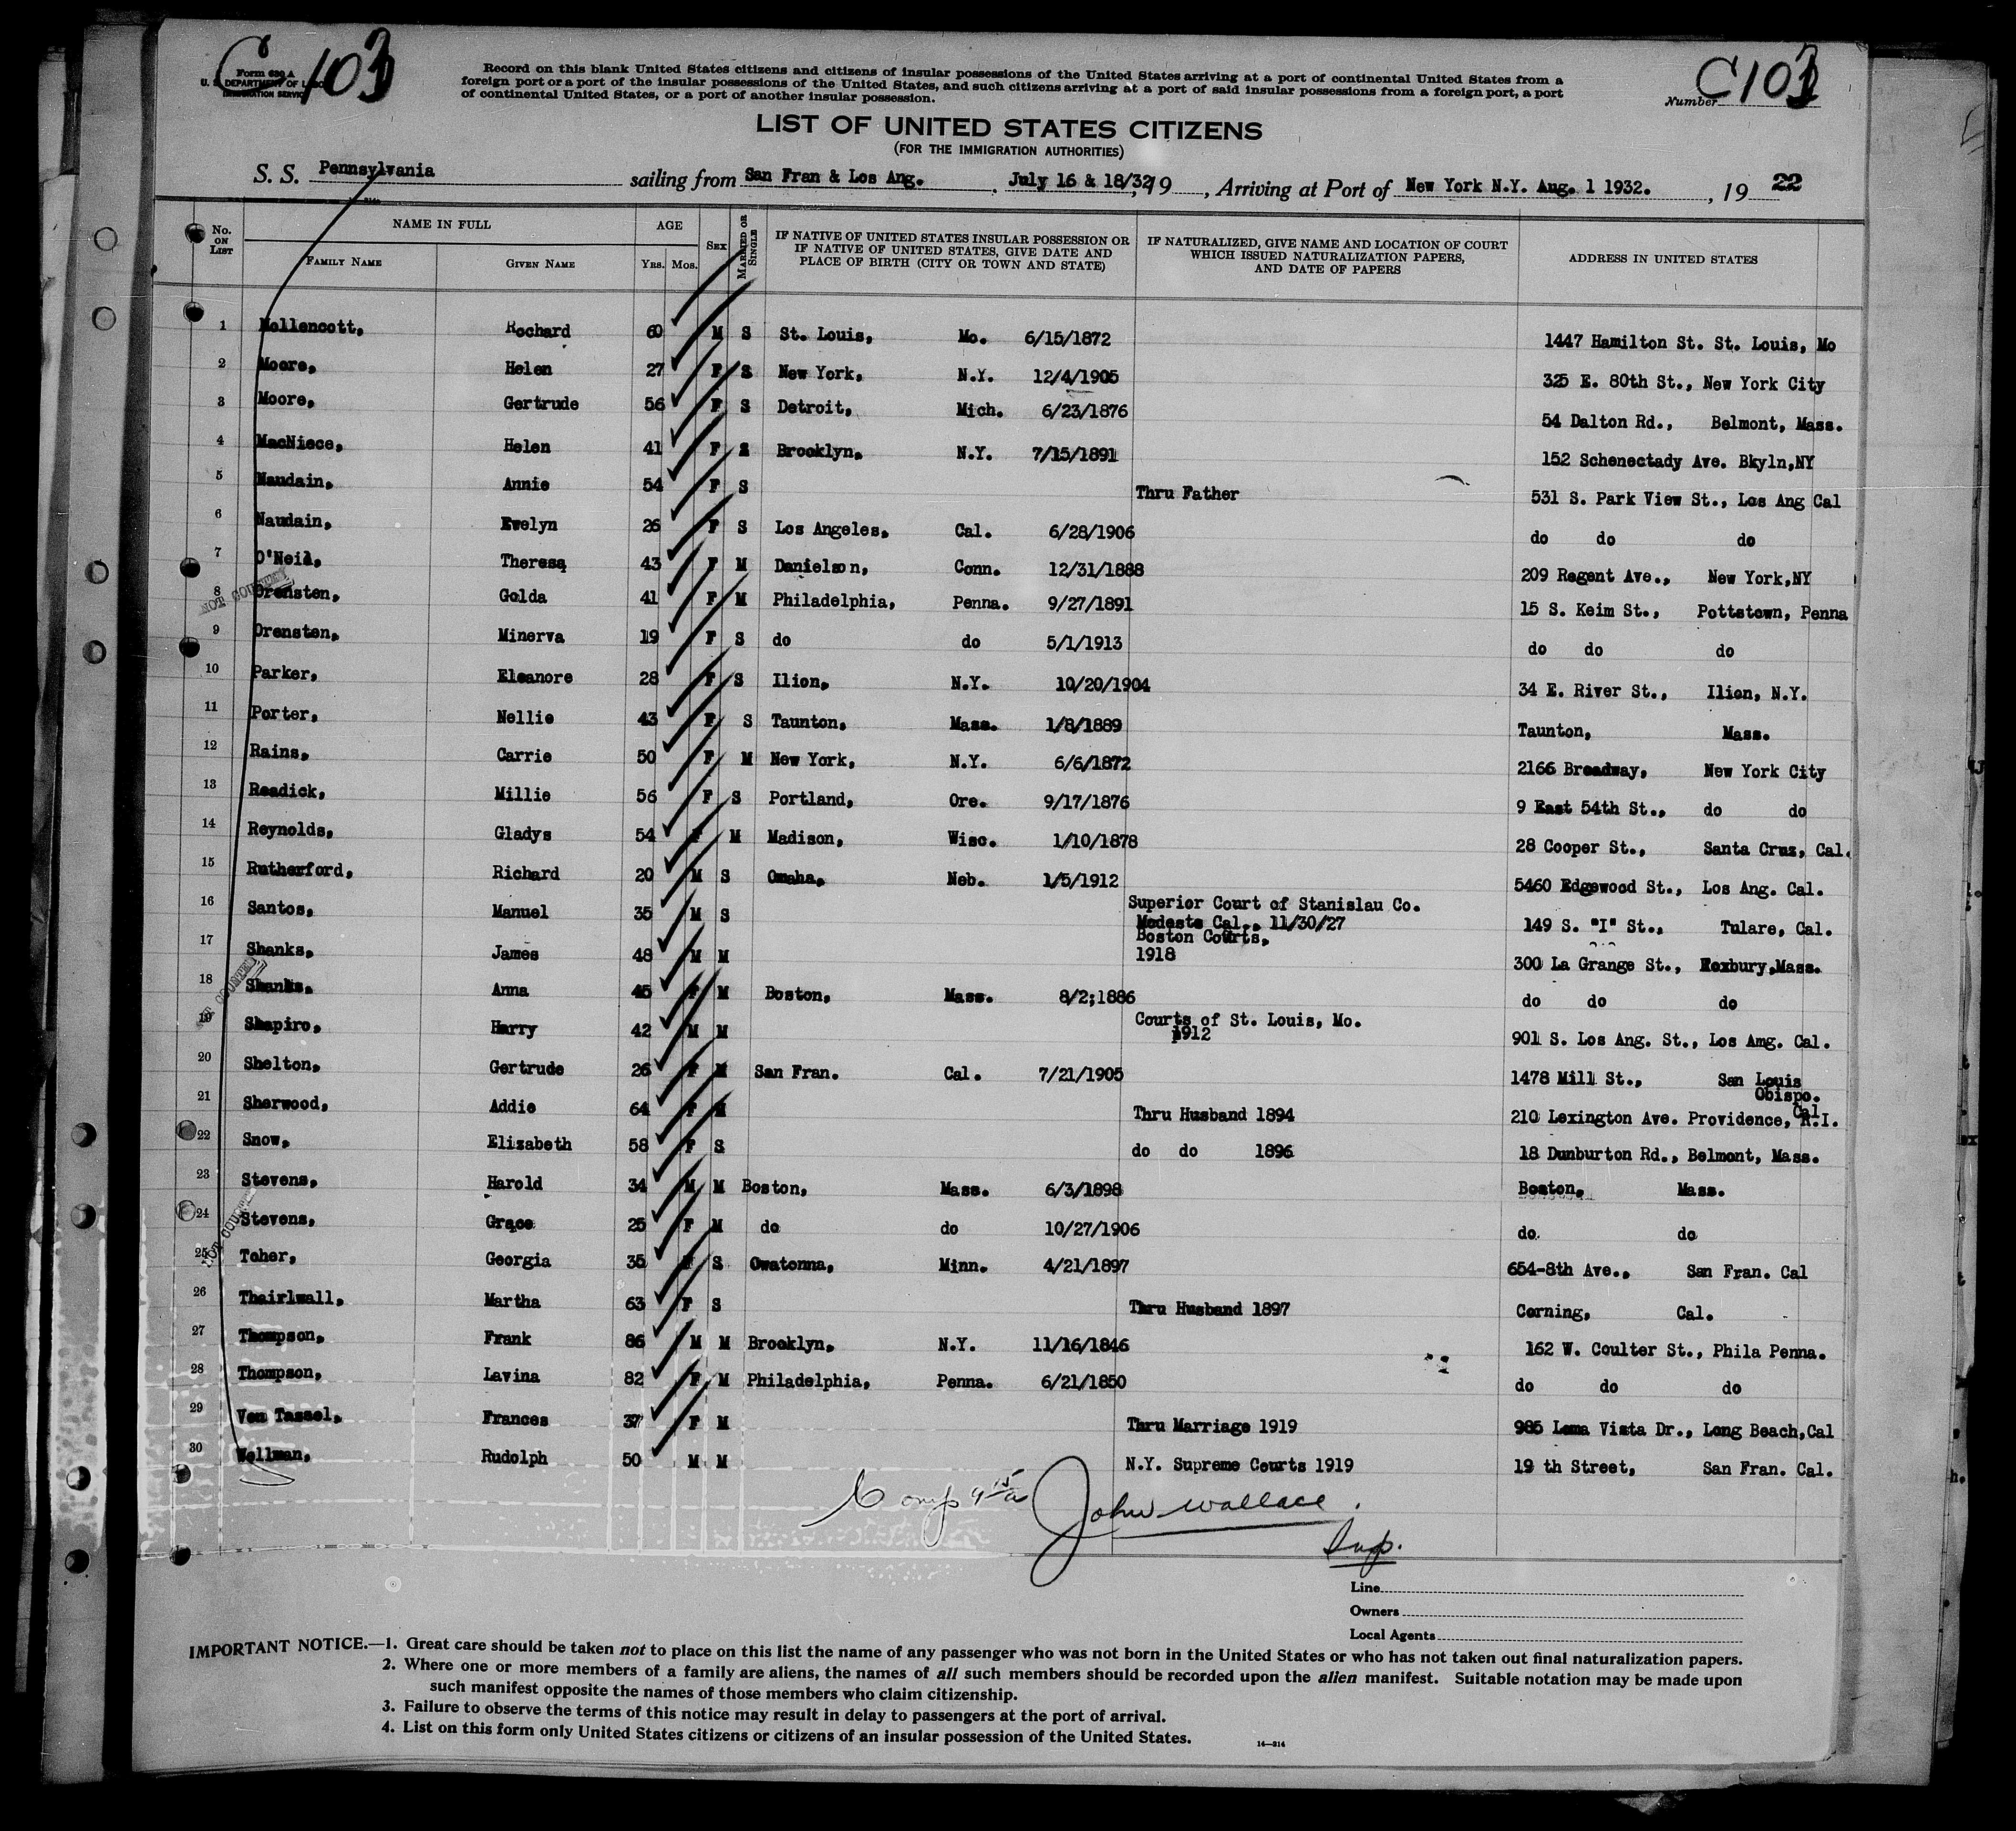 C 103
Form 630 A
U. S. DEPARTMENT OF LABOR
IMMIGRATION SERVICE
Record on this blank United States citizens and citizens of insular possessions of the United States arriving at a port of continental United States from a
foreign port or a port of the insular possessions of the United States, and such citizens arriving at a port of said insular possessions from a foreign port, a port
of continental United States, or a port of another insular possession.
Number C103
LIST OF UNITED STATES CITIZENS
(FOR THE IMMIGRATION AUTHORITIES)
S. S. Pennsylvania sailing from San Fran & Los Ang. July 16 & 18/32, 19 , Arriving at Port of New York N.Y. Aug. 1 1932. , 19 22
No. ON LIST NAME IN FULL FAMILY NAME GIVEN NAME AGE YRS. MOS. SEX MARRIED OR SINGLE IF NATIVE OF UNITED STATES INSULAR POSSESSION OR IF NATIVE OF UNITED STATES, GIVE DATE AND PLACE OF BIRTH (CITY OR TOWN AND STATE) IF NATURALIZED, GIVE NAME AND LOCATION OF COURT WHICH ISSUED NATURALIZATION PAPERS, AND DATE OF PAPERS ADDRESS IN UNITED STATES
1 Mollencott, Rochard 60 M S St. Louis, Mo. 6/15/1872 1447 Hamilton St. St. Louis, Mo
2 Moore, Helen 27 F S New York, N.Y. 12/4/1905 325 E. 80th St., New York City
3 Moore, Gertrude 56 F S Detroit, Mich. 6/23/1876 54 Dalton Rd., Belmont, Mass.
4 MacNiece, Helen 41 F S Brooklyn, N.Y. 7/15/1891 152 Schenectady Ave. Bkyln,NY
5 Naudain, Annie 54 F S Thru Father 531 S. Park View St., Los Ang Cal
6 Naudain, Evelyn 26 F S Los Angeles, Cal. 6/28/1906 do do do
7 O'Neil, Theresa 43 F M Danielson, Conn. 12/31/1888 209 Regent Ave., New York,NY
8 Orensten, Golda 41 F M Philadelphia, Penna. 9/27/1891 15 S. Keim St., Pottstown, Penna
NOT COUNTED
9 Orensten, Minerva 19 F S do do 5/1/1913 do do do
10 Parker, Eleanore 28 F S Ilion, N.Y. 10/20/1904 34 E. River St., Ilion, N.Y.
11 Porter, Nellie 43 F S Taunton, Mass. 1/8/1889 Taunton, Mass.
12 Rains, Carrie 50 F M New York, N.Y. 6/6/1872 2166 Broadway, New York City
13 Readick, Millie 56 F S Portland, Ore. 9/17/1876 9 East 54th St., do do
14 Reynolds, Gladys 54 F M Madison, Wisc. 1/10/1878 28 Cooper St., Santa Cruz, Cal.
15 Rutherford, Richard 20 M S Omaha, Neb. 1/5/1912 5460 Edgewood St., Los Ang. Cal.
16 Santos, Manuel 35 M S Superior Court of Stanislau Co. Modesto Cal., 11/30/27 149 S. "I" St., Tulare, Cal.
17 Shanks, James 48 M M Boston Courts, 1918 300 La Grange St., Roxbury,Mass.
18 Shanks, Anna 45 F M Boston, Mass. 8/2;1886 do do do
NOT COUNTED
19 Shapiro, Harry 42 M M Courts of St. Louis, Mo. 1912 901 S. Los Ang. St., Los Amg. Cal.
20 Shelton, Gertrude 26 F M San Fran. Cal. 7/21/1905 1478 Mill St., San Louis Obispo. Cal
21 Sherwood, Addie 64 F M Thru Husband 1894 210 Lexington Ave. Providence, R.I.
22 Snow, Elizabeth 58 F S do do 1896 18 Dunburton Rd., Belmont, Mass.
23 Stevens, Harold 34 M M Boston, Mass. 6/3/1898 Boston, Mass.
24 Stevens, Grace 25 F M do do 10/27/1906 do do
NOT COUNTED
25 Toher, Georgia 35 F S Owatonna, Minn. 4/21/1897 654-8th Ave., San Fran. Cal
26 Thairlwall, Martha 63 F S Thru Husband 1897 Corning, Cal.
27 Thompson, Frank 86 M M Brooklyn, N.Y. 11/16/1846 162 W. Coulter St., Phila Penna.
28 Thompson, Lavina 82 F M Philadelphia, Penna. 6/21/1850 do do do
29 Van Tassel, Frances 37 F M Thru Marriage 1919 985 Loma Vista Dr., Long Beach,Cal
30 Wollman, Rudolph 50 M M N.Y. Supreme Courts 1919 19 th Street, San Fran. Cal.
John Wallace.
Insp.
Line
Owners
Local Agents
IMPORTANT NOTICE.—1. Great care should be taken not to place on this list the name of any passenger who was not born in the United States or who has not taken out final naturalization papers.
2. Where one or more members of a family are aliens, the names of all such members should be recorded upon the alien manifest. Suitable notation may be made upon
such manifest opposite the names of those members who claim citizenship.
3. Failure to observe the terms of this notice may result in delay to passengers at the port of arrival.
4. List on this form only United States citizens or citizens of an insular possession of the United States.
14—314